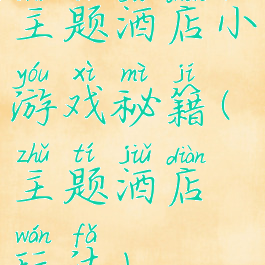 主题酒店小
yóu xì mì jí
游戏秘籍(
zhǔ tí jiǔ diàn
主题酒店
wán fǎ
玩法)